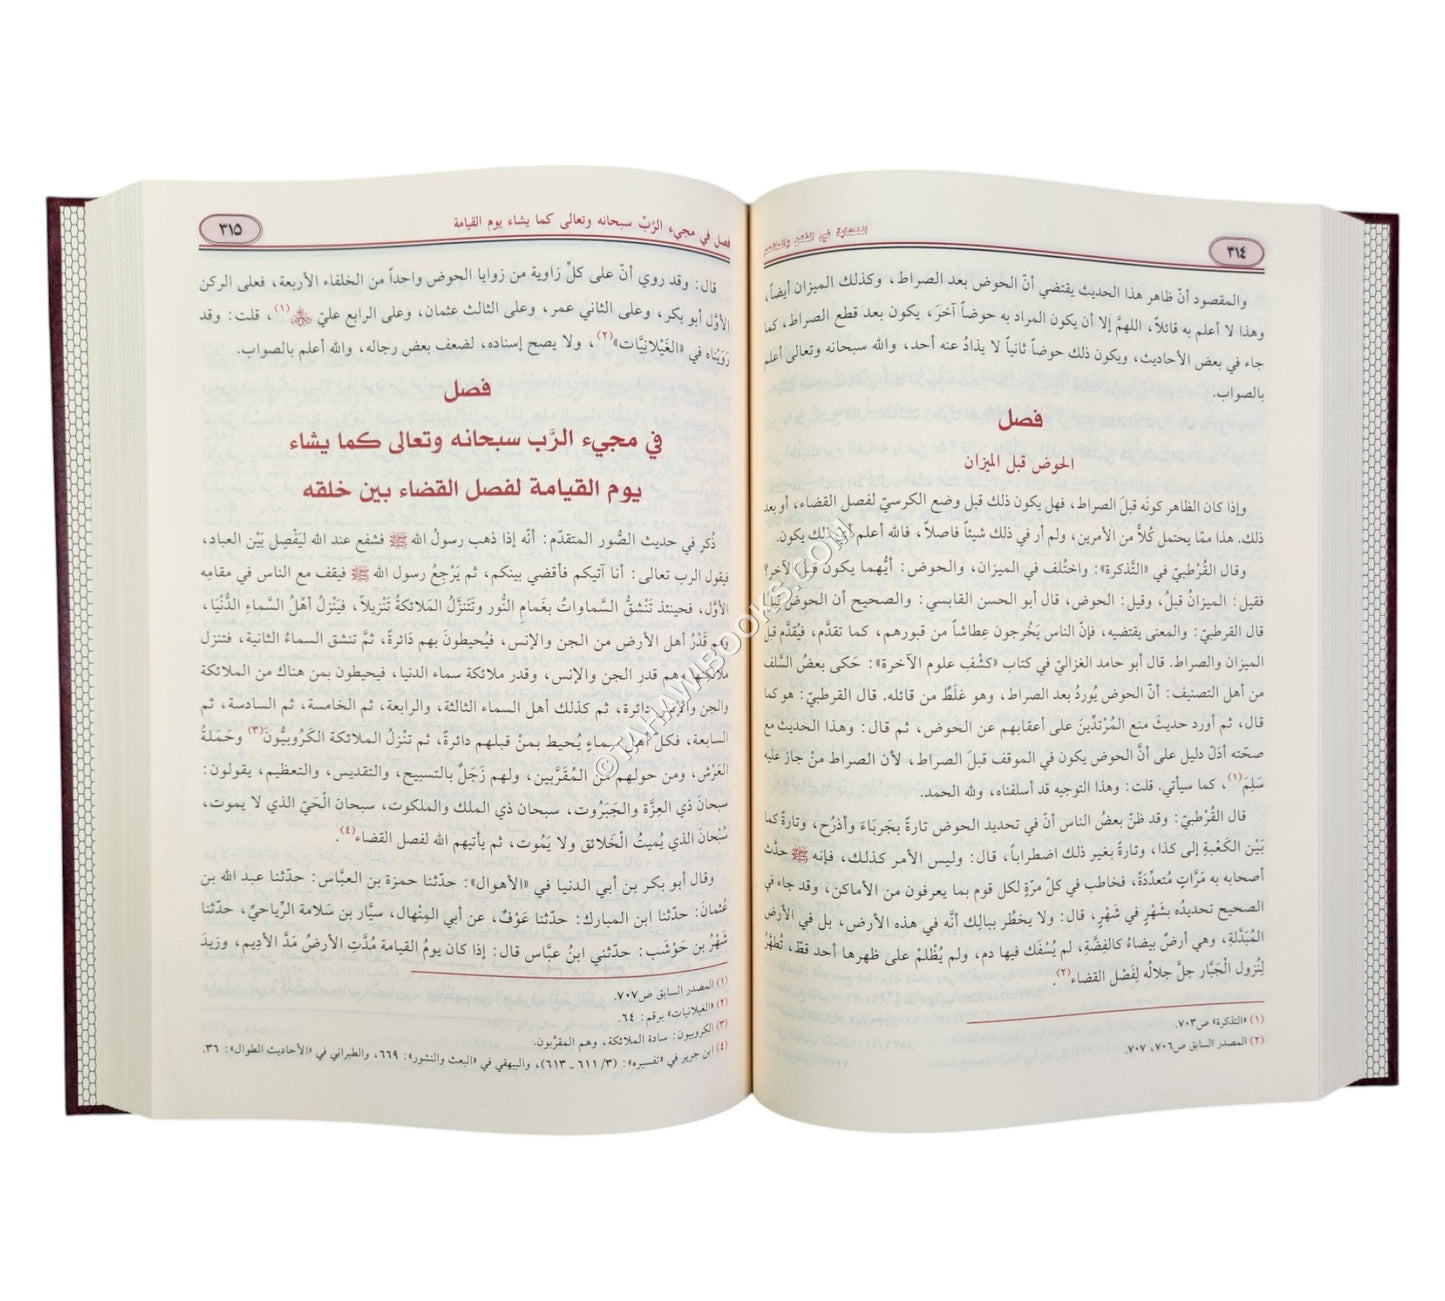 ٣١٤
النهاية في الفتن والملاحم
والمقصود أنّ ظاهر هذا الحديث يقتضي أنّ الحوض بعد الصراط، وكذلك الميزان أيضاً،
وهذا لا أعلم به قائلاً، اللهمَّ إلا أن يكون المراد به حوضاً آخرَ، يكون بعد قطع الصراط، كما
جاء في بعض الأحاديث، ويكون ذلك حوضاً ثانياً لا يذادُ عنه أحد، والله سبحانه وتعالى أعلم
بالصواب.
فصل
الحوض قبل الميزان
وإذا كان الظاهر كونَه قبلَ الصراط، فهل يكون ذلك قبل وضع الكرسيّ لفصل القضاء، أو بعد
ذلك. هذا ممّا يحتمل كُلاًّ من الأمرين، ولم أر في ذلك شيئاً فاصلاً، فالله أعلم أيّ ذلك يكون.
وقال القُرْطبيّ في «التَّذكرة»: واختُلف في الميزان، والحوض: أيُّهما يكون قبلَ الآخر؟
فقيل: الميزانُ قبلُ، وقيل: الحوض، قال أبو الحسن القابسي: والصحيح أن الحوض قبل
قال القرطبيّ: والمعنى يقتضيه، فإنّ الناس يَخْرجون عِطاشاً من قبورهم، كما تقدَّم، فيُقدَّم قبل
الميزان والصراط. قال أبو حامد الغزاليّ في كتاب «كشْفِ علوم الآخرة»: حَكى بعضُ السَّلف
من أهل التصنيف: أنّ الحوض يُوردُ بعد الصراط، وهو غلَطٌ من قائله. قال القرطبيّ: هو كما
قال، ثم أورد حديثَ منع المُرْتدِّينَ على أعقابهم عن الحوض، ثم قال: وهذا الحديث مع
صحّته أدَلّ دليل على أنَّ الحوض يكون في الموقف قبلَ الصراط، لأن الصراط منْ جاز عليه
سَلِمَ(١)، كما سيأتي. قلت: وهذا التوجيه قد أسلفناه، ولله الحمد.
قال القُرْطبيّ: وقد ظنّ بعضُ الناس أنّ في تحديد الحوض تارةً بجَربَاءَ وأذرُح، وتارةً كما
بَيْن الكَعْبةِ إلى كذا، وتارةً بغير ذلك اضطراباً، قال: وليس الأمر كذلك، فإنه ﷺ حدَّث
أصحابه به مَرَّاتٍ متعدِّدَةً، فخاطب في كلّ مرّةٍ لكل قوم بما يعرفون من الأماكن، وقد جاء في
الصحيح تحديدُه بشَهْرٍ في شَهْرٍ، قال: ولا يخطُر ببالِك أنَّه في هذه الأرض، بل في الأرض
المُبَدَّلةِ، وهي أرضٌ بيضاءُ كالفِضَّةِ، لم يُسْفَك فيها دم، ولم يُظْلمْ على ظهرها أحد قطّ، تُطهَّرُ
لِنُزول الْجَبَّار جلَّ جلالُه لِفَصْل القضاء(٢).
(١) «التذكرة» ص٧٠٣.
(٢) المصدر السابق ص٧٠٦، ٧٠٧.
فصل في مجيء الرَّبّ سبحانه وتعالى كما يشاء يوم القيامة
٣١٥
قال: وقد روي أنّ على كلِّ زاوية من زوايا الحوض واحداً من الخلفاء الأربعة، فعلى الركن
الأوَّل أبو بكر، وعلى الثاني عمر، وعلى الثالث عثمان، وعلى الرابع عليّ (١)، قلت: وقد
رَوَيْناه في «الغَيْلانِيَّات»(٢)، ولا يصح إسناده، لضعف بعض رجاله، والله أعلم بالصواب.
فصل
في مجيء الرَّب سبحانه وتعالى كما يشاء
يوم القيامة لفصل القضاء بين خلقه
ذُكر في حديث الصُّور المتقدّم: أنّه إذا ذهب رسولُ الله ﷺ فشفع عند الله ليَفْصِل بَيْن العباد،
فيقول الرب تعالى: أنا آتيكم فأقضي بينكم، ثم يَرْجِعُ رسول الله ﷺ فيقف مع الناس في مقامِه
الأوَّل، فحينئذ تَنْشقُّ السَّماواتُ بغَمامِ النُّور وتَتَنزَّلُ المَلائكةُ تَنْزيلاً، فيَنْزِلُ أهْلُ السَّماءِ الدُّنْيَا،
وهم قَدْرُ أهل الأرض من الجن والإنس، فيُحيطونَ بهم دَائرةً، ثمَّ تنشق السماءُ الثانية، فتنزل
ملائكتها وهم قدر الجن والإنس، وقدر ملائكة سماء الدنيا، فيحيطون بمن هناك من الملائكة
والجن والإنس دائرة، ثم كذلك أهل السماء الثالثة، والرابعة، ثم الخامسة، ثم السادسة، ثم
السابعة، فكلّ أهل سماءٍ يُحيط بمنْ قبلهم دائرةً، ثم تنْزلُ الملائكة الكَروبيُّونَ(٣) وحَمَلةُ
العَرْش، ومن حولهم من المُقَرَّبين، ولهم زَجَلٌ بالتسبيح، والتقديس، والتعظيم، يقولون:
سبحانَ ذي العِزَّة والجَبَرُوت، سبحان ذي الملك والملكوت، سبحان الْحَيّ الذي لا يموت،
سُبْحانَ الذي يُميتُ الْخَلائق ولا يَمُوت، ثم يأتيهم الله لفصل القضاء(٤).
وقال أبو بكر بن أبي الدنيا في «الأهوال»: حدّثنا حمزة بن العبَّاس: حدّثنا عبد الله بن
عُثمانَ: حدّثنا ابن المبارك: حدّثنا عَوْفٌ، عن أبي المِنْهال، سيَّار بن سَلامة الرِّياحيِّ، حدّثنا
شَهْرُ بن حَوْشَب: حدّثني ابنُ عبَّاس قال: إذا كان يومُ القيامة مُدَّتِ الأرضُ مَدَّ الأدِيم، وزيدَ
(١) المصدر السابق ص٧٠٧.
(٢) «الغيلانيات» برقم: ٦٤.
(٣) الكروبيون: سادة الملائكة، وهم المقرَّبون.
(٤) ابن جرير في «تفسيره»: (٣/ ٦١١ ـ ٦١٣)، والبيهقي في «البعث والنشور»: ٦٦٩، والطبراني في «الأحاديث الطوال»: ٣٦.
© TAHAWIBOOKS.COM